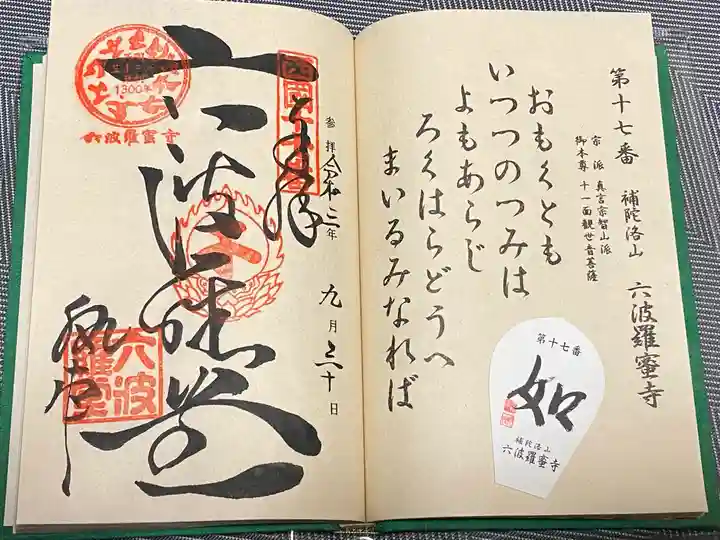 第十七番 補陀洛山 六波羅蜜寺
宗派 真言宗智山派
御本尊 十一面観世音菩薩
おもくとも
いつつのつみは
よもあらじ
ろくはらどうへ
まいるみなれば
第十七番
如
補陀洛山
六波羅蜜寺
奉拝
参拝 令和三年 九月二十日
六波羅堂
1300年
六波羅蜜寺
六波羅堂